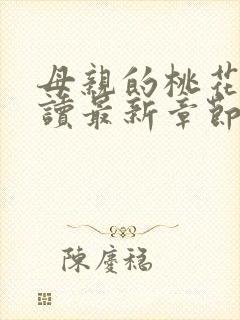 母親的桃花
讀最新章節
陳慶稳